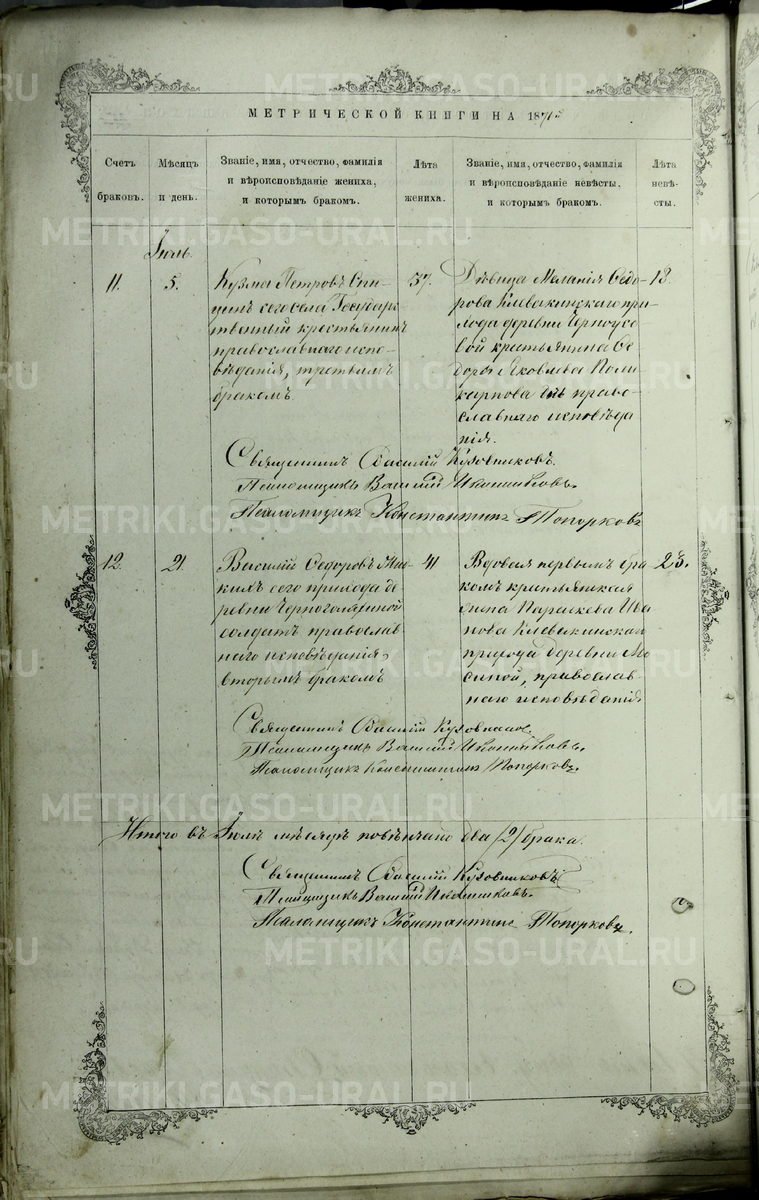 МЕТРИЧЕСКОЙ КНИГИ НА 187
Счетъ браковъ.
Мѣсяцъ и день.
Званіе, имя, отчество, фамилія
и вѣроисповѣданіе жениха,
и которымъ бракомъ.
Лѣта жениха.
Званіе, имя, отчество, фамилія
и вѣроисповѣданіе невѣсты,
и которымъ бракомъ.
Лѣта невѣ-
сты.
Іюль.
11.
5.
Кузма Петровъ Спи-
цинъ сего села Государ
ственный крестьянинъ
православнаго испо-
вѣданія, третьимъ
бракомъ.
37.
Дѣвица Меланія Ѳедо-
рова Клевакинскаго при-
хода деревни Черноусо-
вой крестьянина Ѳе-
дора Яковлева Поли-
карпова право-
славнаго исповѣда
нія.
18.
Священникъ Василій Кузовниковъ.
Псаломщикъ Василій Иконниковъ.
Псаломщикъ Константинъ Топорковъ
12.
21.
Василій Ѳедоровъ
сего прихода де-
ревни
солдатъ православ
наго исповѣданія,
вторымъ бракомъ
41
Вдовая первымъ бра
комъ крестьянская
жена Параскева Ива
нова Клевакинскаго
прихода деревни Мо
синой, православ-
наго исповѣданія
23.
Священникъ Василій Кузовников.
Псаломщикъ Василій Иконниковъ.
Псаломщикъ Константинъ Топорковъ.
Итого въ Іюлѣ мѣсяцѣ повѣнчано два /2/ брака.
Священникъ Василій Кузовниковъ
Псаломщикъ Василій Иконниковъ.
Псаломщикъ Константинъ Топорковъ.
METRIKI.GASO-URAL.RU